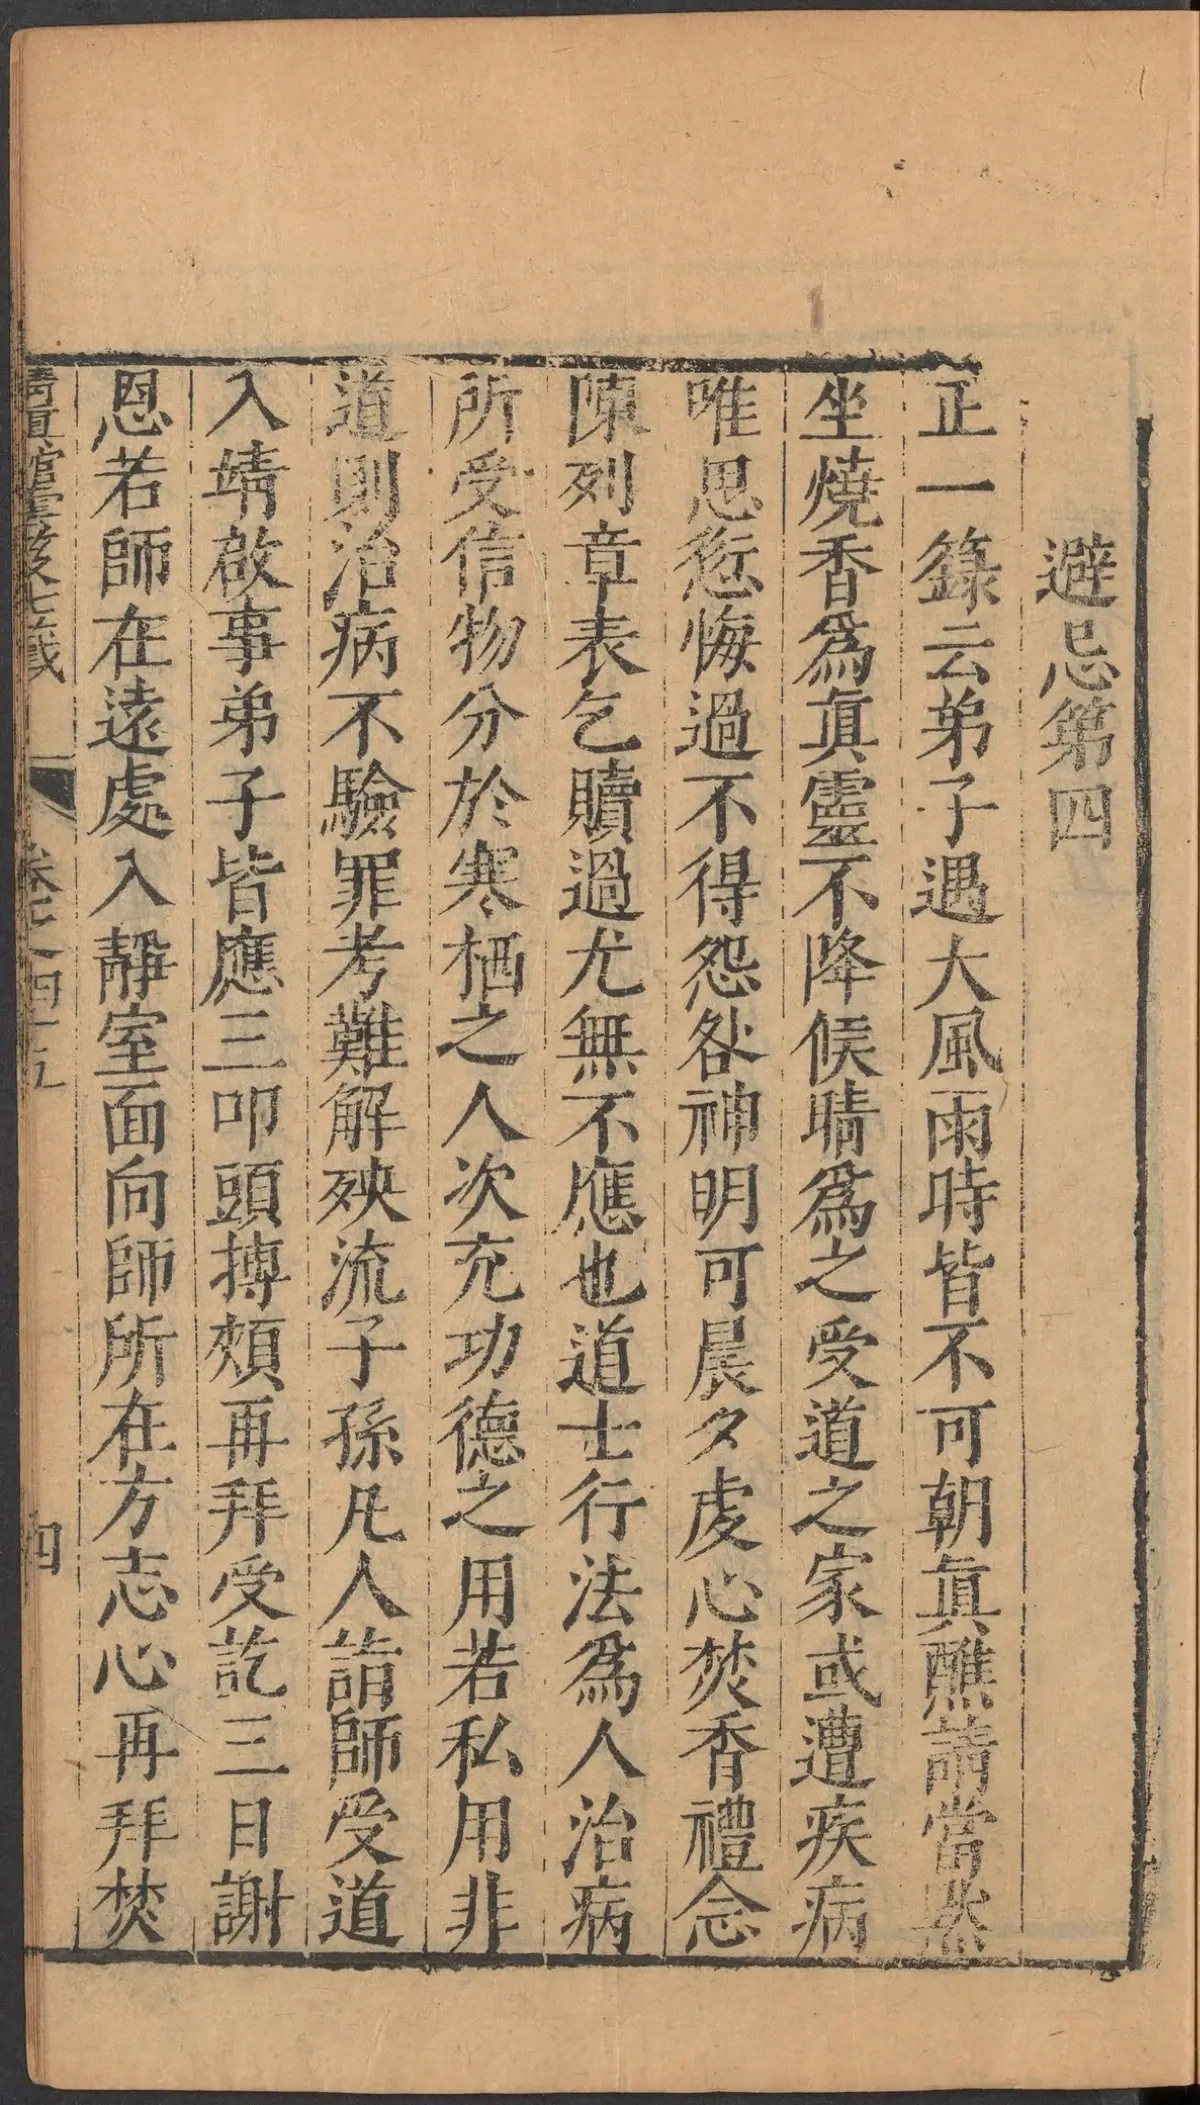 避忌第四
正一籙云弟子遇大風雨時皆不可朝眞醮請當燕
坐燒香爲眞靈不降候晴爲之受道之家或遭疾病
唯思愆悔過不得怨咎神明可晨夕虔心焚香禮念
陳列章表乞贖過尤無不應也道士行法爲人治病
所受信物分於寒栖之人次充功德之用若私用非
道則治病不驗罪考難解殃流子孫凡人詣師受道
入靖啟事弟子皆應三叩頭搏頰再拜受訖三日謝
恩若師在遠處入靜室面向師所在方志心再拜焚
清眞館雲笈七籤 卷之四十五 四